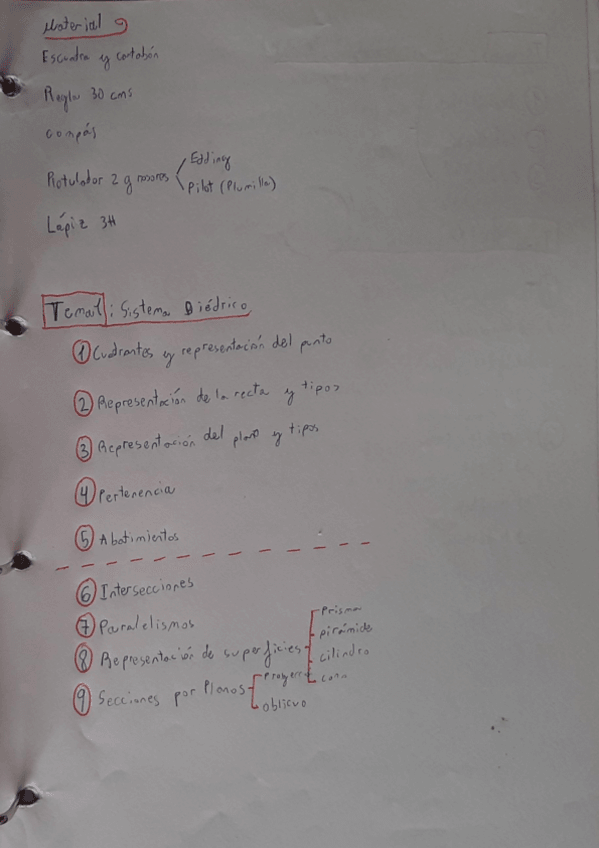 Material
Escuadra y cartabón
Regla 30 cms
compás
Rotulador 2 grosores
Edding
Pilot (Plumilla)
Lápiz 3H
Tema 1: Sistema Diédrico
① Cuadrantes y representación del punto
② Representación de la recta y tipos
③ Representación del plano y tipos
④ Pertenencia
⑤ Abatimientos
⑥ Intersecciones
⑦ Paralelismos
⑧ Representación de superficies
Prisma
pirámide
cilindro
cono
⑨ Secciones por Planos
oblicuo